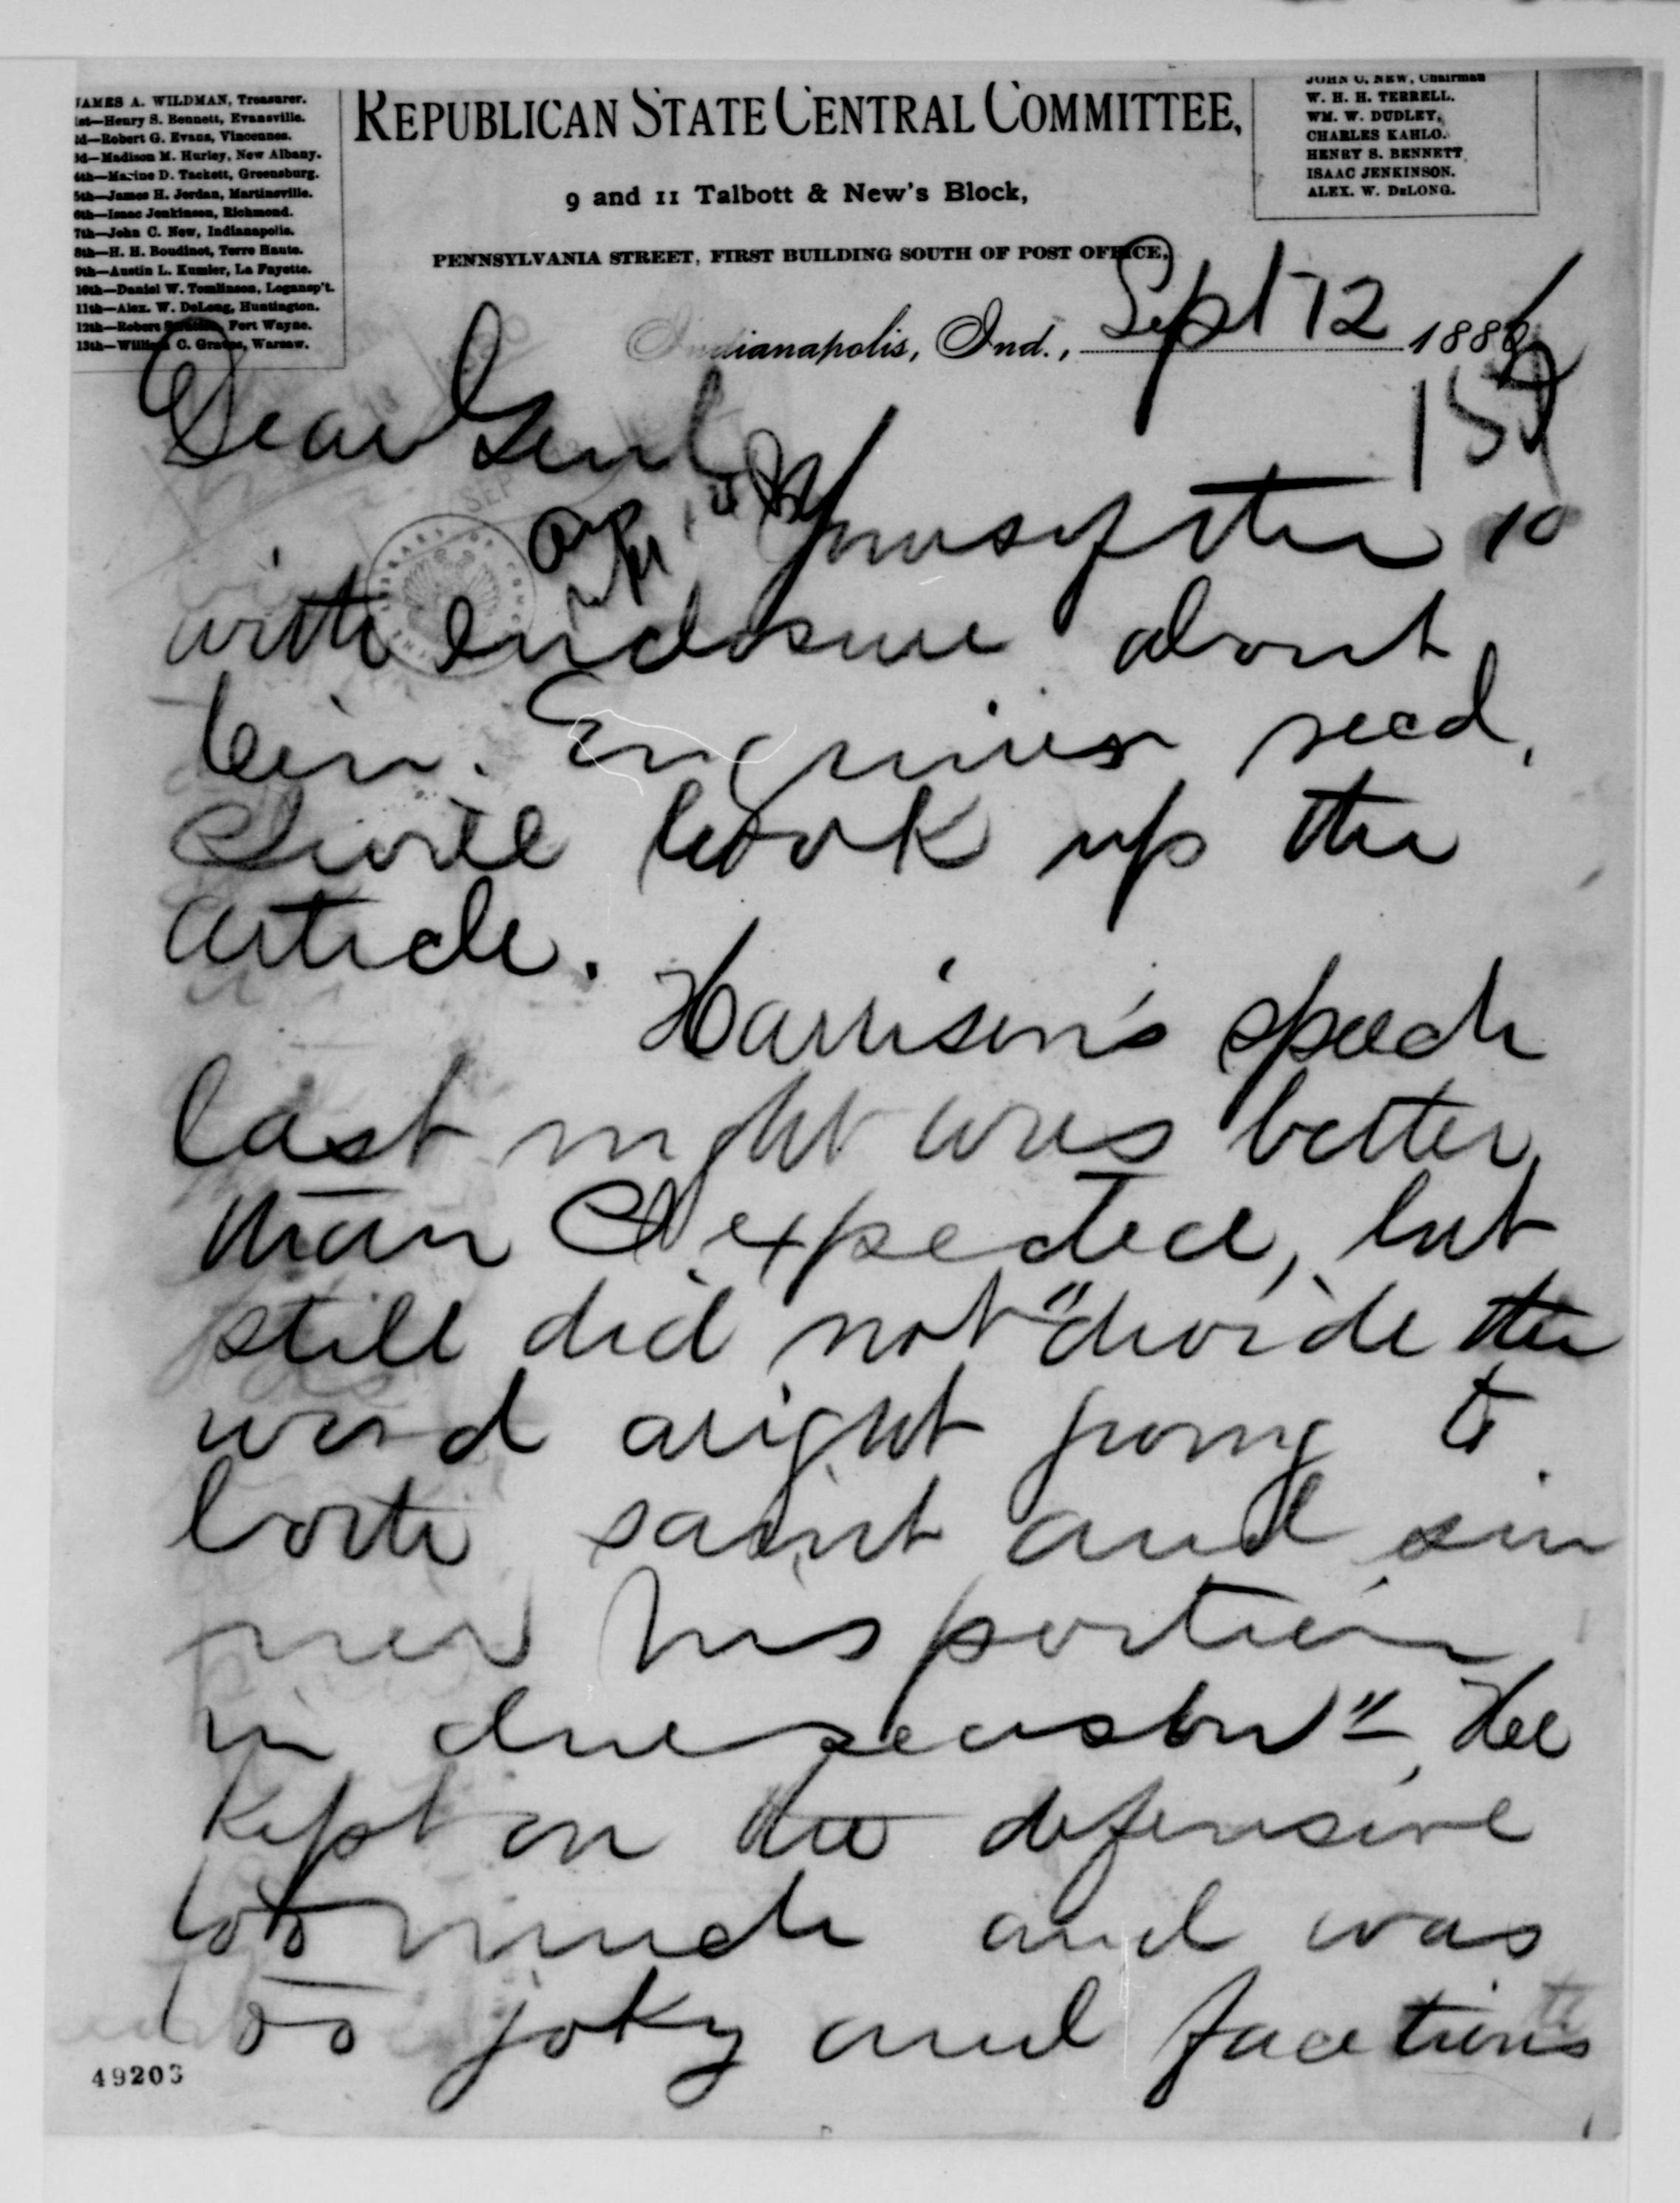 JAMES A. WILDMAN, Treasurer.
1st—Henry S. Bennett, Evansville.
2d—Robert G. Evans, Vincennes.
3d—Madison M. Hurley, New Albany.
4th—Marine D. Tackett, Greensburg.
5th—James H. Jordan, Martinsville.
6th—Isaac Jenkinson, Richmond.
7th—John C. New, Indianapolis.
8th—H. H. Boudinot, Terre Haute.
9th—Austin L. Kumler, La Fayette.
10th—Daniel W. Tomlinson, Logansp't.
11th—Alex. W. DeLong, Huntington.
12th—Robert Fort Wayne.
13th—William C. Graves, Warsaw.
REPUBLICAN STATE CENTRAL COMMITTEE,
9 and 11 Talbott & New's Block,
PENNSYLVANIA STREET, FIRST BUILDING SOUTH OF POST OFFICE,
JOHN C. NEW, Chairman
W. H. H. TERRELL.
WM. W. DUDLEY.
CHARLES KAHLO.
HENRY S. BENNETT
ISAAC JENKINSON.
ALEX. W. DeLONG.
Indianapolis, Ind., Sept 12 188
Dear Genl
Yours of the 10
with enclosure about
Cin. Enquirer recd.
I will look up the
article.
Harrison's speech
last night was better
than I expected, but
still did not "divide the
word aright giving to
both saint and sin
ner his portion
in due season". He
kept on the defensive
too much and was
too joky and facetious
49203